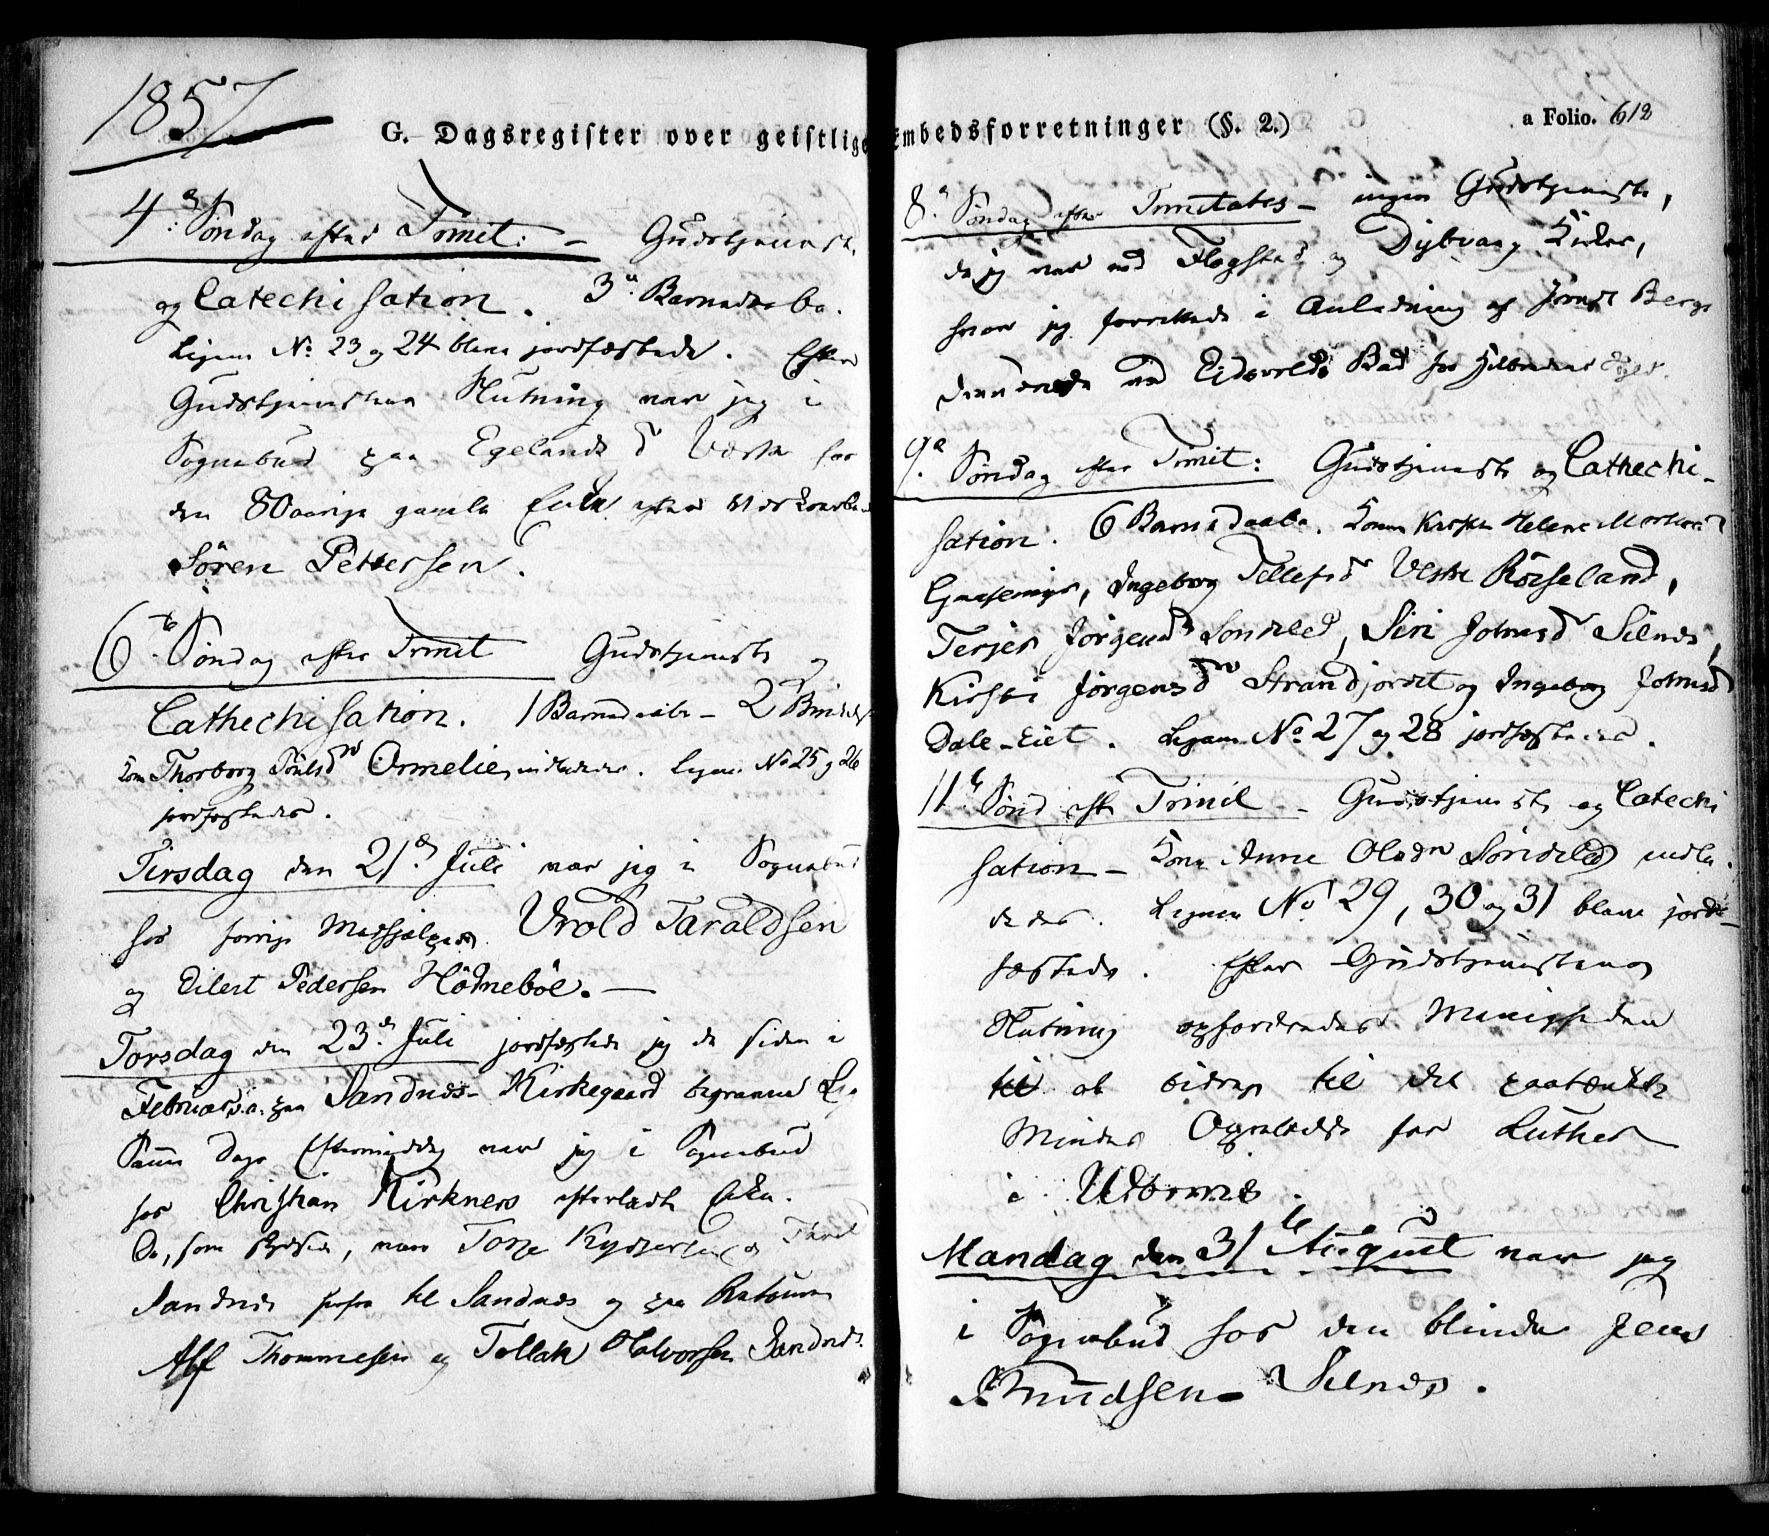 1857
G. Dagsregister over geistlige Embedsforretninger (§. 2.)
4de Søndag efter Trinit: – Gudstjeneste
og Catechisation. 3 Barnedaabe.
Ligene No 23 og 24 bleve jordfæstede. Efter
Gudstjenestens Slutning var jeg i
Sognebud paa Egelands Værk hos
den 80aarige gamle Enke efter
Sören Pettersen.
6te Søndag efter Trinit Gudstjeneste og
Cathechisation. 1 Barnedaab – 2
Kone Thorborg Ormelie indlededes. Ligene No 25 og 26
jordfæstedes.
Tirsdag den 21de Juli var jeg i Sognebud
hos forrige Medhjælper Vrold Taraldsen
og Eilert Pedersen Hödneböe. –
Torsdag den 23de Juli jordfæstede jeg de siden i
Februar d.a. paa Sandnes-Kirkegaard begravne Lig
Samme Dags Eftermiddag var jeg i Sognebud
hos Christian Kirknes efterladte Enke.
De, som var Torje
Sandnes herfra til Sandnæs og paa Retouren
Alf Thommesen og Tellak Halvorsen Sandnes.
a Folio. 612
8de Søndag efter Trinitates – ingen Gudstjeneste,
da jeg var ved Flogstad og Dybvaag Kirker,
hvor jeg forrettede i Anledning af Berge
ved Eidsvolds Bad for
9de Søndag efter Trinit: Gudstjeneste og Cathechi-
sation. 6 Barnedaabe. Helene
Ingeborg Tellefsd Vestre Röiseland,
Terjer Jörgensd Sönдeled, Siri Johnsd Silnes,
Kirsti Jörgensd Strandjordet og Ingeborg Johnsd
Dale-Eiet. Ligene No 27 og 28 jordfæstedes.
11te Sønd efter Trinit – Gudstjeneste og Catechi
sation – Kone Anne Olsdr Söndeled indle-
dedes. Ligene No 29, 30 og 31 bleve jord-
fæstede. Efter Gudstjenestens
Slutning opfordredes Menigheden
til at bidrage til det paatænkte
Mindes for Luther
i
Mandag den 31te August var jeg
i Sognebud hos den blinde Jens
Knudsen Silnes.